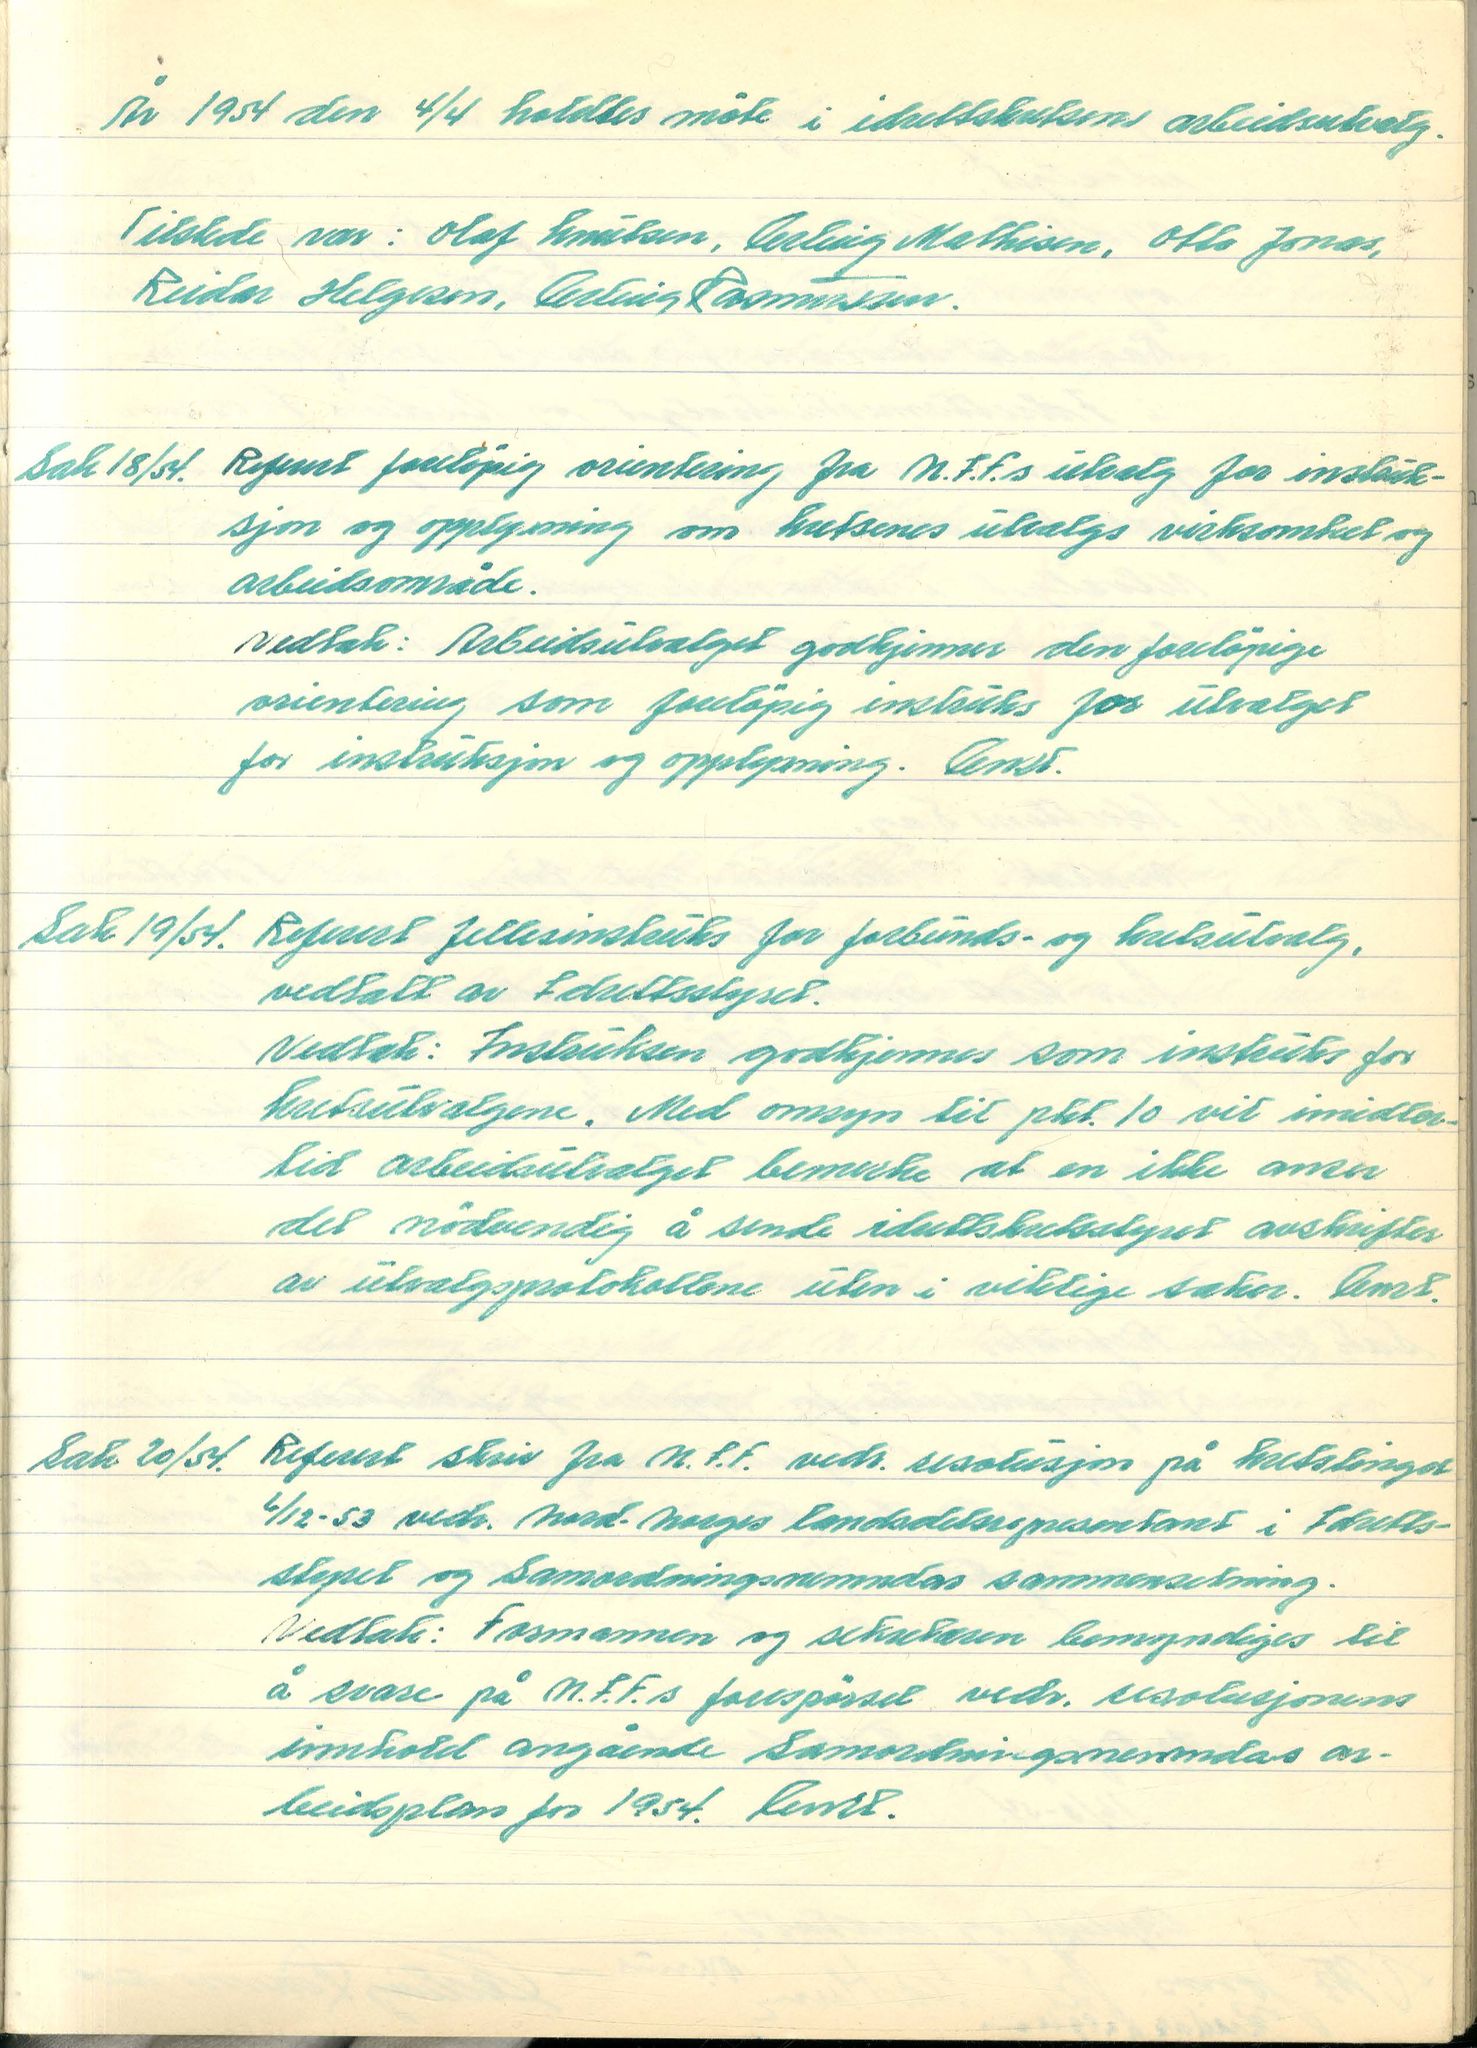 År 1954 den 4/4 holdtes möte i idrettskretsens arbeidsutvalg.
Tilstede var: Olaf Knutsen, Erling Mathisen, Otto Jonas,
Reidar Helgesen, Erling Rasmussen.
Sak 18/54. Referert foreløpig orientering fra N.F.F.s utvalg for instruk-
sjon og opplysning om kretsenes utvalgs virksomhet og
arbeidsområde.
Vedtak: Arbeidsutvalget godkjenner den foreløpige
orientering som foreløpig instruks for utvalget
for instruksjon og opplysning. Enst.
Sak 19/54. Referert fellesinstruks for forbunds- og kretsutvalg,
vedtatt av Idrettsstyret.
Vedtak: Instruksen godkjennes som instruks for
kretsutvalgene. Med omsyn til pkt. 10 vil imidler-
tid arbeidsutvalget bemerke at en ikke anser
det nödvendig å sende idrettskretsstyret avskrifter
av utvalgsprotokollene uten i viktige saker. Enst.
Sak 20/54. Referert skriv fra N.F.F. vedr. resolusjon på kretstinget
6/12-53 vedr. Nord-Norges landsdelsrepresentant i Idretts-
styret og Samordningsnemndas sammensetning.
Vedtak: Formannen og sekretæren bemyndiges til
å svare på N.F.F.s forespörsel vedr. resolusjonens
innhold angående Samordningsnemndas ar-
beidsplan for 1954. Enst.